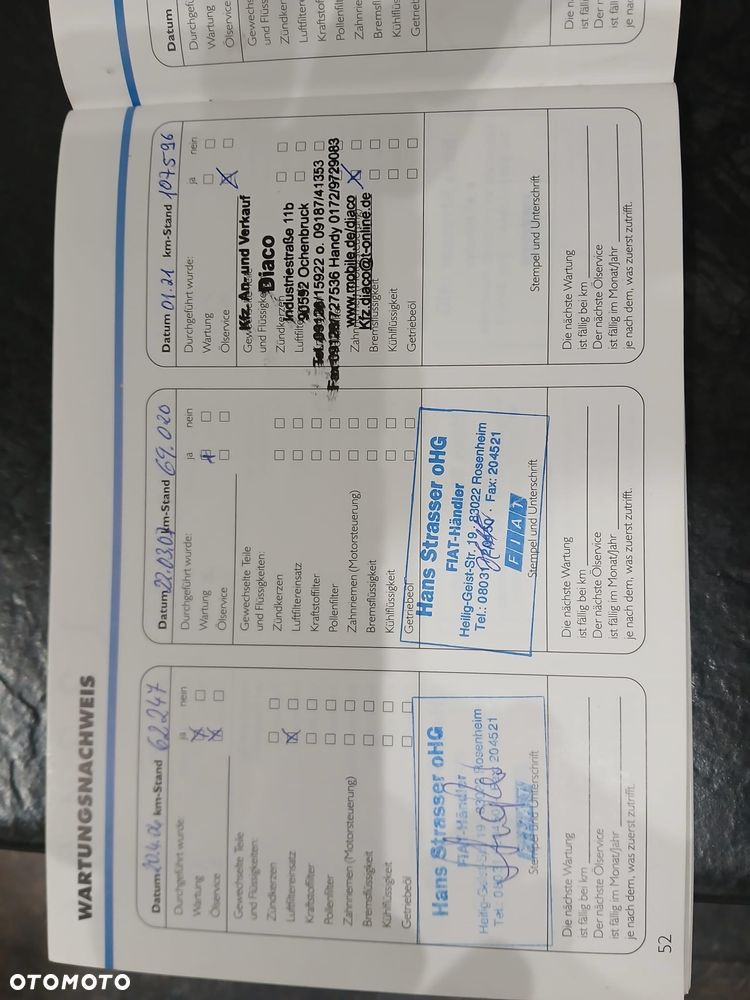 WARTUNGSNACHWEIS
Datum 20.4.06 km-Stand 62247
Durchgeführt wurde:
ja nein
Wartung
Ölservice
Gewechselte Teile
und Flüssigkeiten:
Zündkerzen
Luftfiltereinsatz
Kraftstoffilter
Pollenfilter
Zahnriemen (Motorsteuerung)
Bremsflüssigkeit
Kühlflüssigkeit
Getriebeöl
Hans Strasser oHG
FIAT-Händler
Heilig-Geist-Str. 19, 83022 Rosenheim
Tel.: 0803 Fax: 204521
Stempel und Unterschrift
Die nächste Wartung
ist fällig bei km
Der nächste Ölservice
ist fällig im Monat/Jahr
je nach dem, was zuerst zutrifft.
Datum 22.03.07 km-Stand 69.020
Durchgeführt wurde:
ja nein
Wartung
Ölservice
Gewechselte Teile
und Flüssigkeiten:
Zündkerzen
Luftfiltereinsatz
Kraftstoffilter
Pollenfilter
Zahnriemen (Motorsteuerung)
Bremsflüssigkeit
Kühlflüssigkeit
Getriebeöl
Hans Strasser oHG
FIAT-Händler
Heilig-Geist-Str. 19, 83022 Rosenheim
Tel.: 08031 · Fax: 204521
FIAT
Stempel und Unterschrift
Die nächste Wartung
ist fällig bei km
Der nächste Ölservice
ist fällig im Monat/Jahr
je nach dem, was zuerst zutrifft.
Datum 01.21 km-Stand 107596
Durchgeführt wurde:
ja nein
Wartung
Ölservice
Kfz. An- und Verkauf
Diaco
und Flüssigkeiten:
Industriestraße 11b
Zündkerzen
90592 Ochenbruck
Tel. 09128/15922 o. 09187/41353
Fax 09128/727536 Handy 0172/9729083
www.mobile.de/diaco
Kfz.diaco@t-online.de
Bremsflüssigkeit
Kühlflüssigkeit
Getriebeöl
Stempel und Unterschrift
Die nächste Wartung
ist fällig bei km
Der nächste Ölservice
ist fällig im Monat/Jahr
je nach dem, was zuerst zutrifft.
Datum
Durchgefü
Wartung
Ölservice
Gewechs
und Flüssi
Zündkerz
Luftfiltere
Kraftstof
Pollenfilte
Zahnriem
Bremsflüs
Kühlflüss
Getriebe
Die n
ist fäll
Der n
ist fäll
je nac
52
OTOMOTO